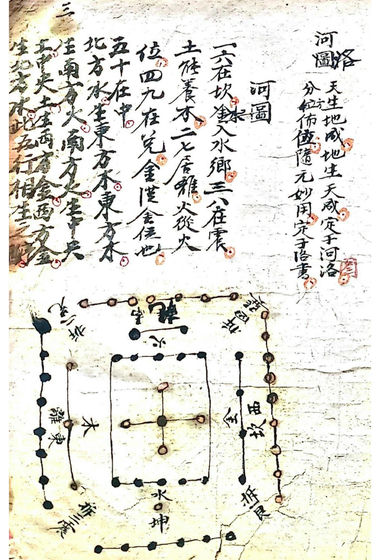 河圖洛
天生地成地生天成定于河洛
分位佈隨元妙用定于洛書
河圖
一六在坎金入水鄉三八在震
水
土能養木二七居離火從火
位四九在兌金從金位也
五十在中
北方水生東方木東方木
生南方火南方火生中央
土中央土生西方金西方金
生北方水此五行相生之
三
乾南
火
西坎
金
木
東離
水
坤